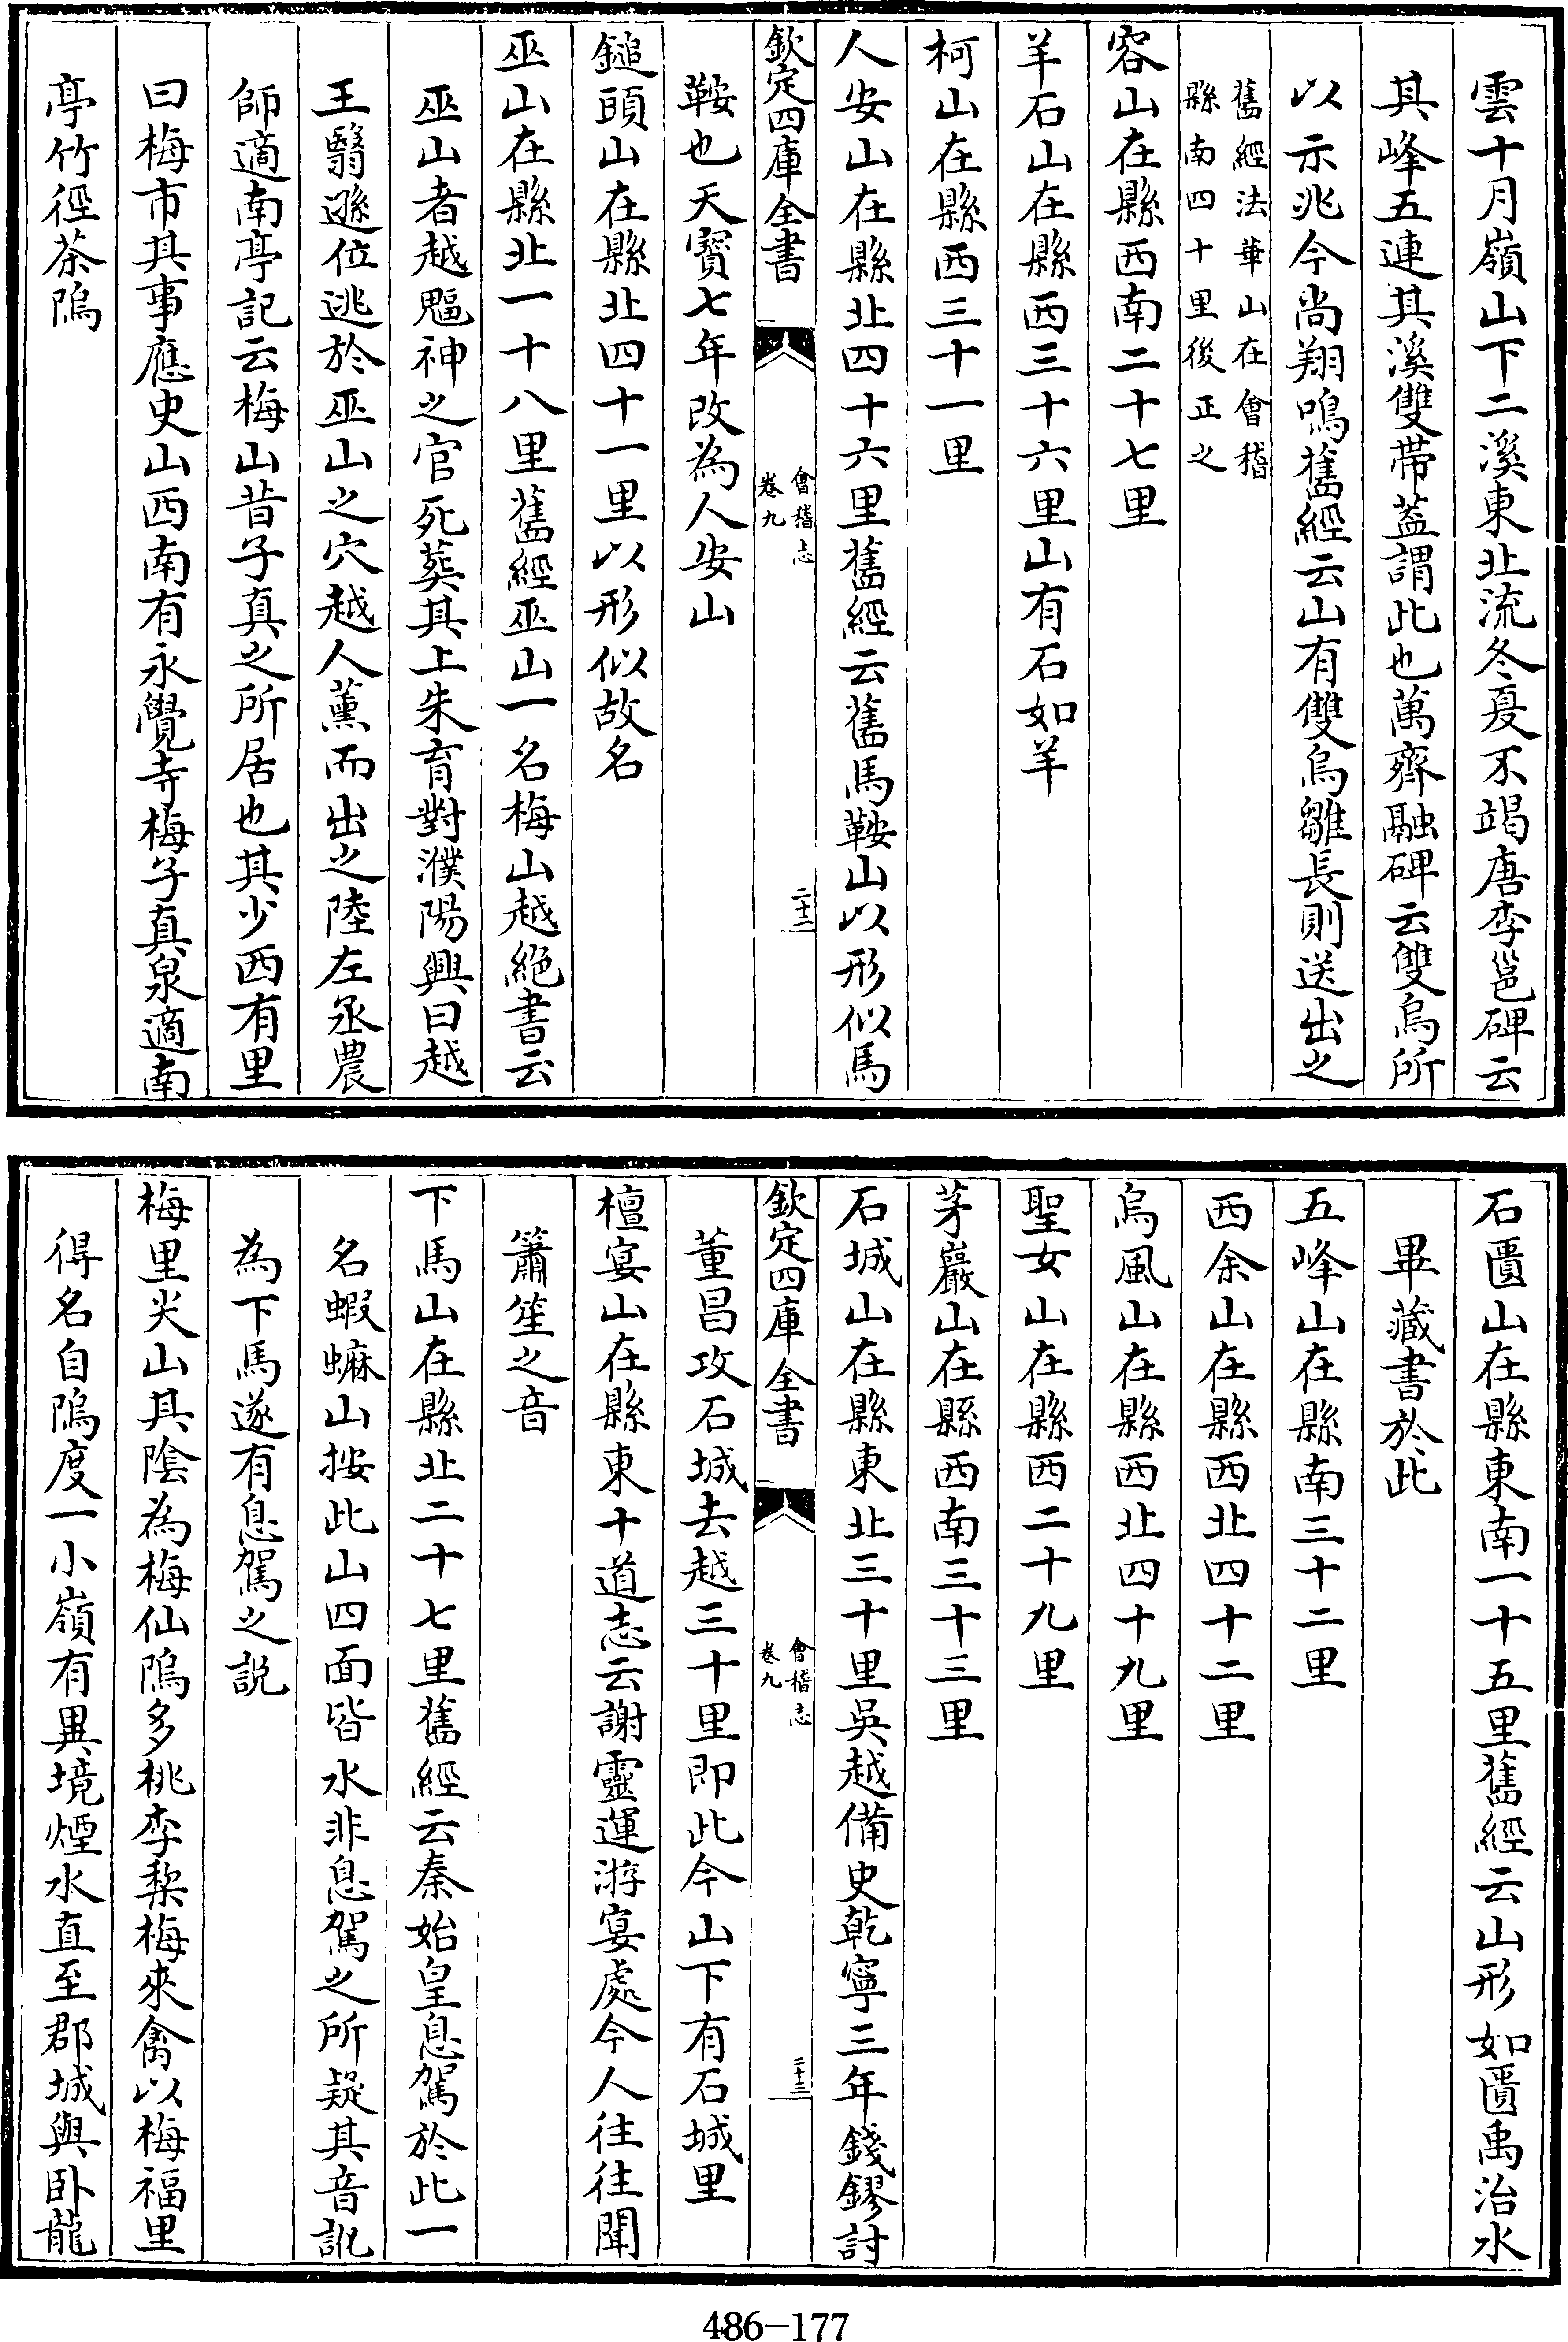 雲十月嶺山下二溪東北流冬夏不竭唐李邕碑云
其峰五連其溪雙帶蓋謂此也萬齊融碑云雙鳥所
以示兆今尚翔鳴舊經云山有雙鳥雛長則送出之
舊經法華山在會稽
縣南四十里後正之
容山在縣西南二十七里
羊石山在縣西三十六里山有石如羊
柯山在縣西三十一里
人安山在縣北四十六里舊經云舊馬鞍山以形似馬
欽定四庫全書
會稽志
卷九
二十二
鞍也天寶七年改為人安山
鎚頭山在縣北四十一里以形似故名
巫山在縣北一十八里舊經巫山一名梅山越絕書云
巫山者越魖神之官死葬其上朱育對濮陽興曰越
王翳遜位逃於巫山之穴越人薰而出之陸左丞農
師適南亭記云梅山昔子真之所居也其少西有里
曰梅市其事應史山西南有永覺寺梅子真泉適南
亭竹徑茶隖
石匱山在縣東南一十五里舊經云山形如匱禹治水
畢藏書於此
五峰山在縣南三十二里
西余山在縣西北四十二里
烏風山在縣西北四十九里
聖女山在縣西二十九里
茅巖山在縣西南三十三里
石城山在縣東北三十里吳越備史乾寧三年錢鏐討
欽定四庫全書
會稽志
卷九
二十三
董昌攻石城去越三十里即此今山下有石城里
檀宴山在縣東十道志云謝靈運游宴處今人往往聞
簫笙之音
下馬山在縣北二十七里舊經云秦始皇息駕於此一
名蝦䗫山按此山四面皆水非息駕之所疑其音訛
為下馬遂有息駕之說
梅里尖山其陰為梅仙隖多桃李棃梅來禽以梅福里
得名自隖度一小嶺有異境煙水直至郡城與臥龍
486-177